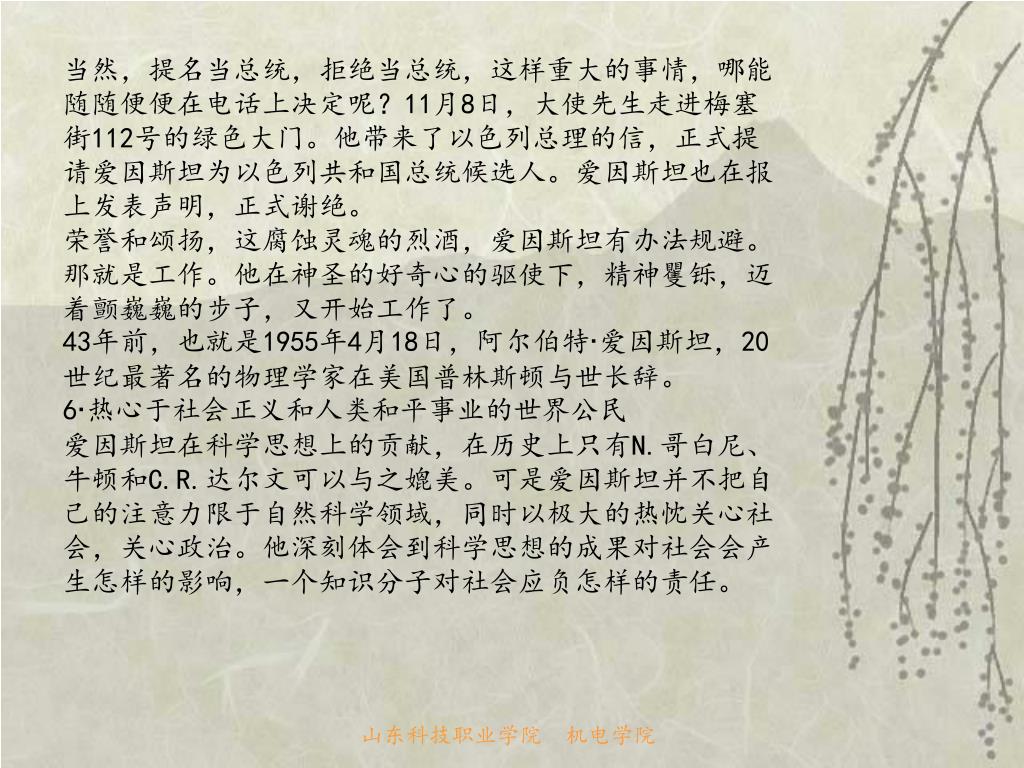 当然，提名当总统，拒绝当总统，这样重大的事情，哪能
随随便便在电话上决定呢？11月8日，大使先生走进梅塞
街112号的绿色大门。他带来了以色列总理的信，正式提
请爱因斯坦为以色列共和国总统候选人。爱因斯坦也在报
上发表声明，正式谢绝。
荣誉和颂扬，这腐蚀灵魂的烈酒，爱因斯坦有办法规避。
那就是工作。他在神圣的好奇心的驱使下，精神矍铄，迈
着颤巍巍的步子，又开始工作了。
43年前，也就是1955年4月18日，阿尔伯特·爱因斯坦，20
世纪最著名的物理学家在美国普林斯顿与世长辞。
6·热心于社会正义和人类和平事业的世界公民
爱因斯坦在科学思想上的贡献，在历史上只有N.哥白尼、
牛顿和C.R.达尔文可以与之媲美。可是爱因斯坦并不把自
己的注意力限于自然科学领域，同时以极大的热忱关心社
会，关心政治。他深刻体会到科学思想的成果对社会会产
生怎样的影响，一个知识分子对社会应负怎样的责任。
山东科技职业学院　机电学院